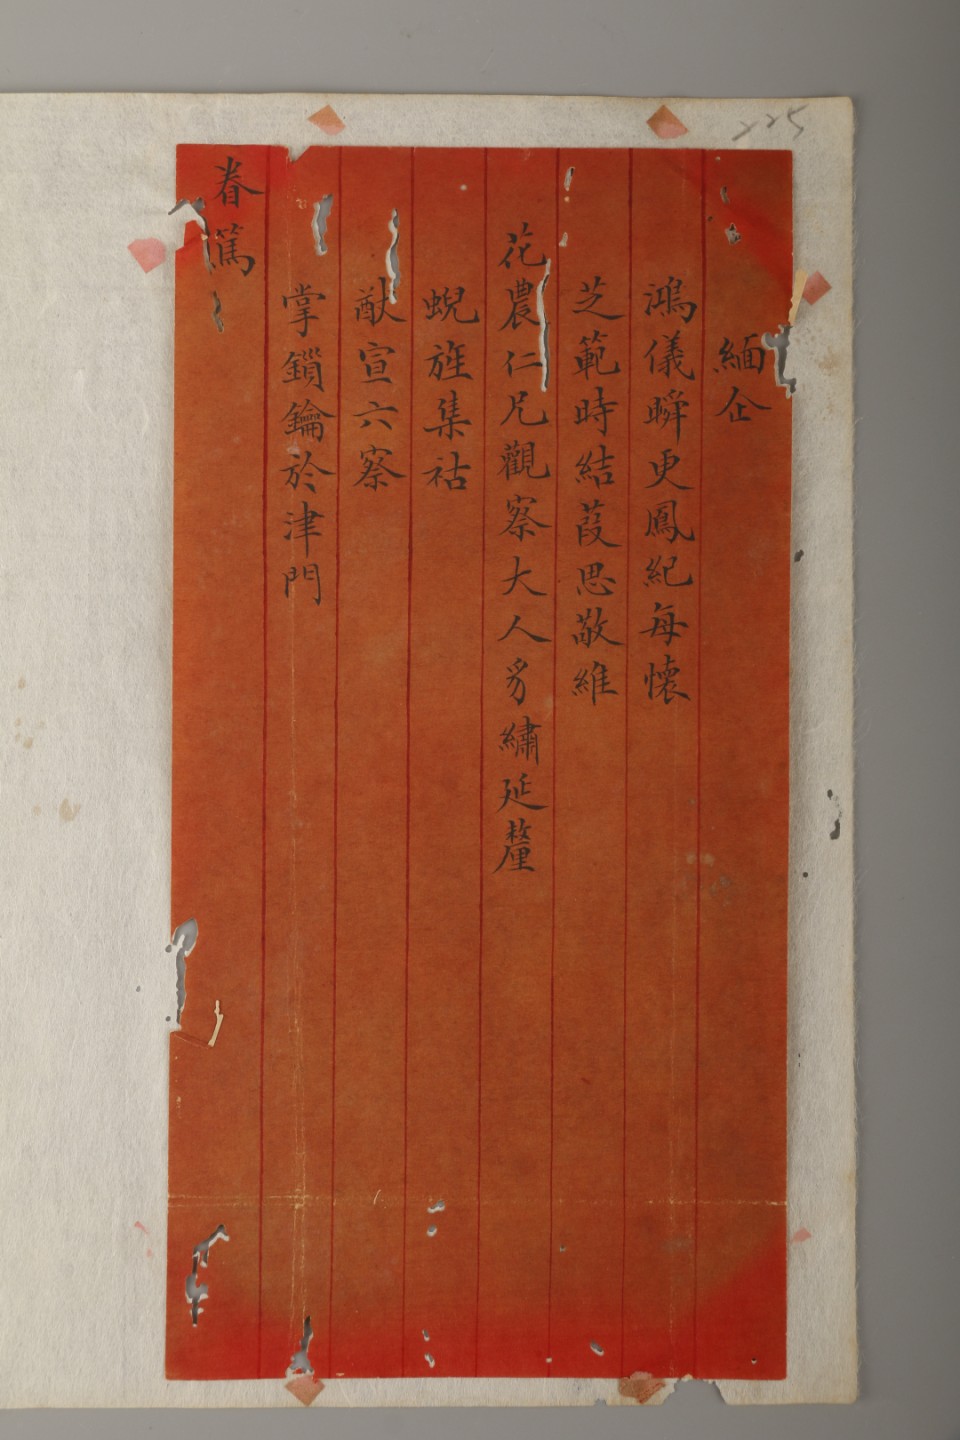 緬企
鴻儀瞬更鳳紀每懷
芝範時結葭思敬維
花農仁兄觀察大人豸繡延釐
蜺旌集祜
猷宣六察
掌鎖鑰於津門
眷篤
225